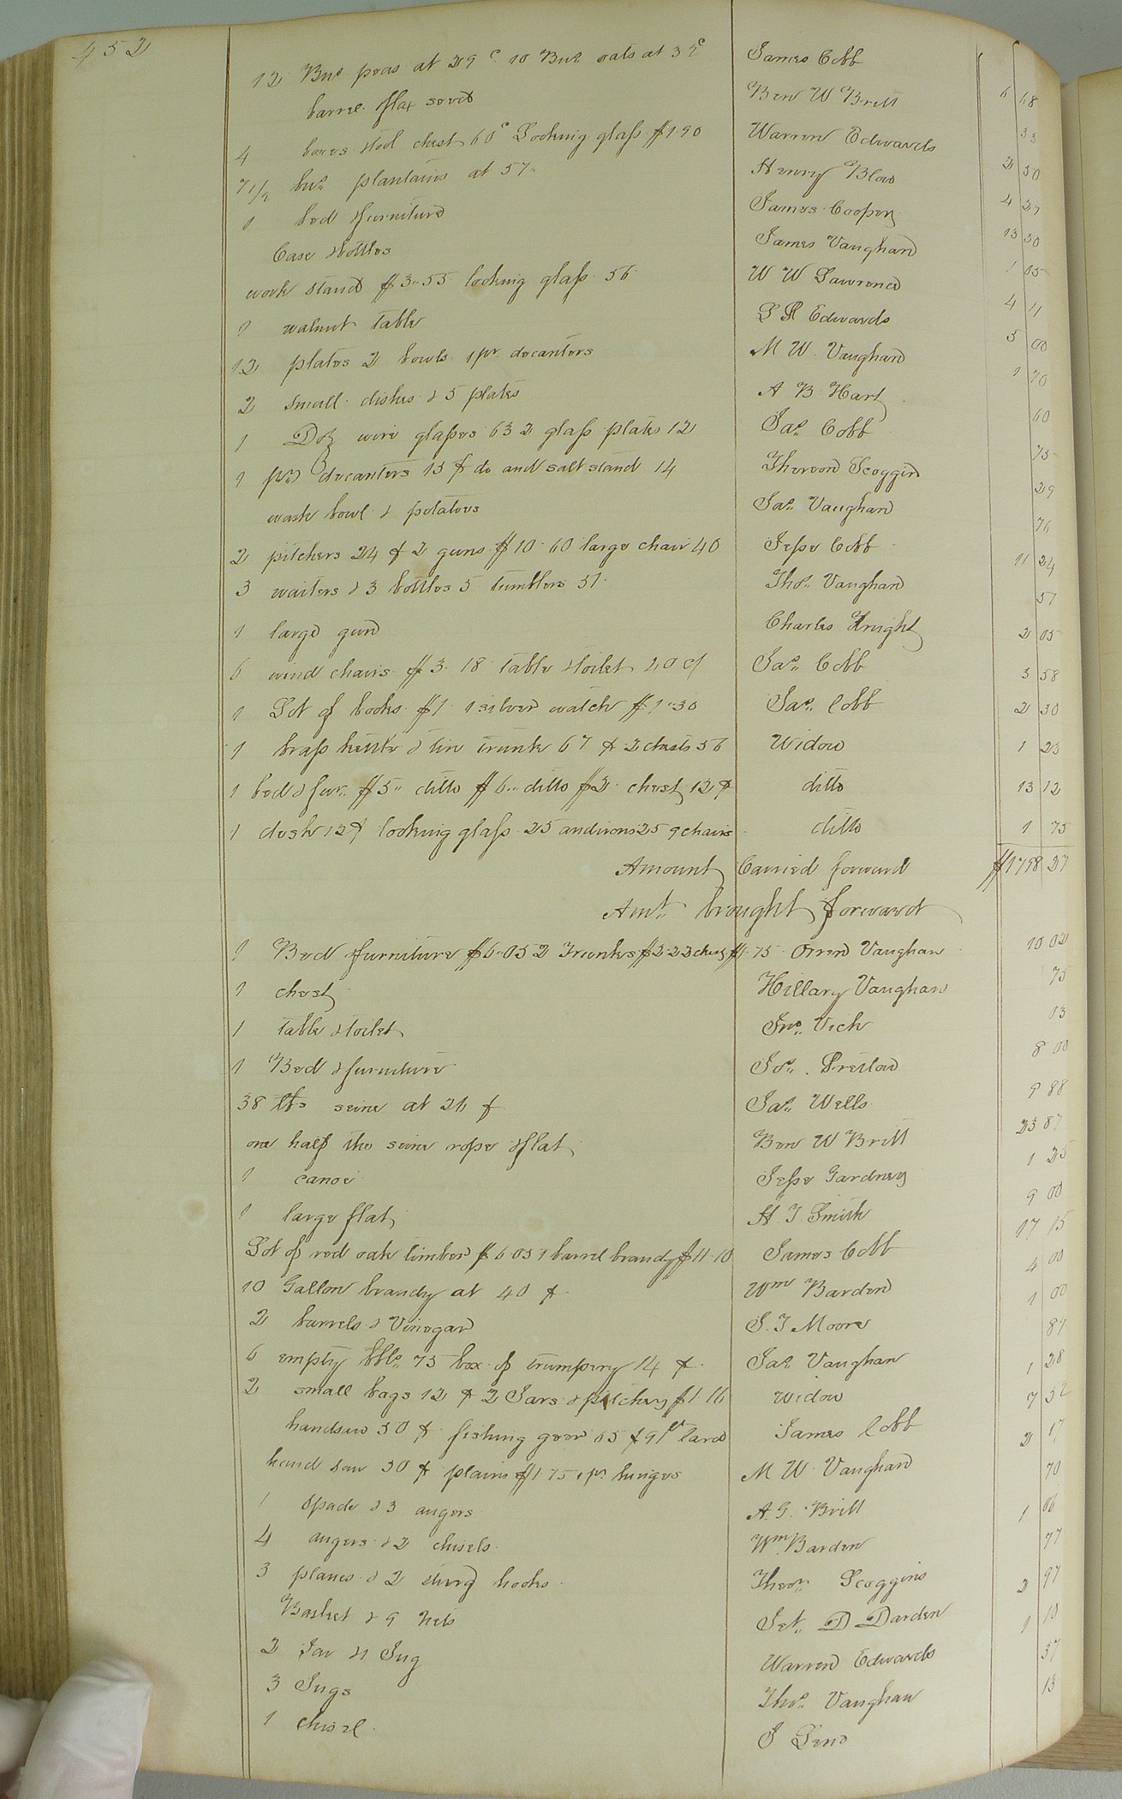 452
12 Bus peas at 29 c 10 Bus oats at 39c James Cobb 6 68
barrel flax seed Ben W Britt 33
4 boxes tool chest 60c Looking glass $1.90 Warren Edwards 2 50
7 1/2 bus plantains at 57 Henry Blow 4 27
1 bed & furniture James Cooper 13 30
Case & bottles James Vaughan 1 05
work stand $3-55 looking glass 56 W W Lawrence 4 11
1 walnut table Edwards 5 00
12 plates 2 bowls 1 pr decanters M W Vaughan 1 70
2 small dishes & 5 plates A B Hart 60
1 Doz wine glasses 63 2 glass plates 12 Jas Cobb 75
1 pr decanters 15 & do and salt stand 14 Scoggin 29
wash bowl & potatoes Jas Vaughan 76
2 pitchers 24 & 2 guns $10-60 large chair 40 Jesse Cobb 11 24
3 waiters & 3 bottles 5 tumblers 51 Thos Vaughan 51
1 large gun Charles Knight 2 05
6 wind chairs $3.18 table & toilet 40 c/ Jas Cobb 3 58
1 Lot of books $1 1 silver watch $1-30 Jas Cobb 2 30
1 brass kettle & tin trunk 67 & 2 chests 56 Widow 1 23
1 bed & fur $5 ditto $6 ditto $2 chest 12 & ditto 13 12
1 desk 12 & looking glass 25 andirons 25 9 chairs ditto 1 75
Amount Carried forward $1798 27
Amt brought forward
1 Bed furniture $6.05 2 Trunks $2.22 chest $1.75 Orren Vaughan 10 02
1 chest Hillary Vaughan 75
1 table & toilet Jno Vick 13
1 Bed & furniture Jos Pretlow 8 00
38 lbs seine at 26 & Jas Wells 9 88
one half the seine rope & flat Ben W Britt 23 87
1 canoe Jesse Gardner 1 25
1 large flat H J Smith 9 00
Lot of red oak timber $6 05 1 barrel brandy $11-10 James Cobb 17 15
10 Gallon brandy at 40 & Wm Barden 4 00
2 barrels & Vinegar S. J Moore 1 00
6 empty bbls 73 box of trumpery 14 & Jas Vaughan 87
2 small bags 12 & 2 Jars & pitcher $1 16 widow 1 28
handsaw 30 & fishing gear 65 & 91 lb lard James Cobb 7 52
hand saw 30 & plains $1 75 1 pr hinges M W Vaughan 2 17
1 spade & 3 augers A. G. Britt 70
4 augers & 2 chisels Wm Barden 1 06
3 planes & 2 hooks Scoggins 77
Basket & 9 nets D Darden 2 97
2 Jar & Jug Warren Edwards 1 10
3 Jugs Thos Vaughan 37
1 chisel 13